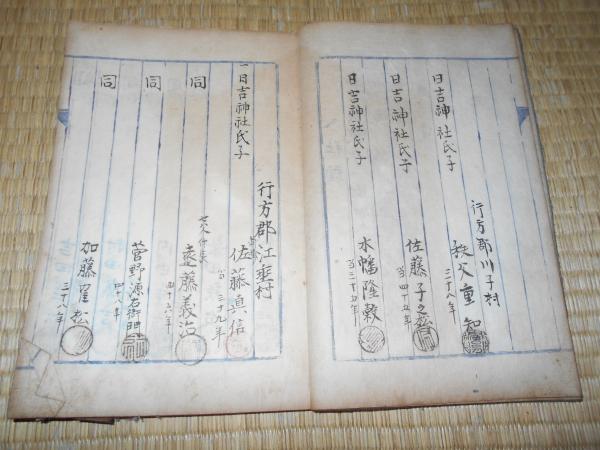 日吉神社氏子
行方郡川子村
秩父重知
三十八年
日吉神社氏子
佐藤子之
四十五年
日吉神社氏子
水幡隆
三十五年
一日吉神社氏子
行方郡江垂村
佐藤真信
三十九年
同
遠藤義治
四十六年
同
菅野源右衛門
四十八年
同
加藤
松
三十八年